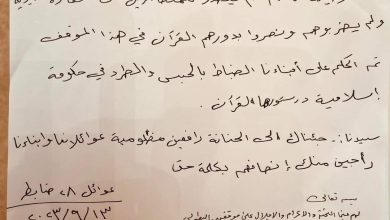 ولم يضربوهم ونصروا بدورهم القرآن في هذا الموقف
تم الحكم على أبناءنا الضباط بالحبس والطرد في حكومة
إسلامية دستورها القرآن .
سيدنا : جئناك الى الحنانة رافعين مظلومية عوائلنا وابناءنا
راجين منك إنصافهم بكلمة حق
عوائل ٢٨ ضابط
٢٠٢٣/٩/١٣
بسمه تعالى